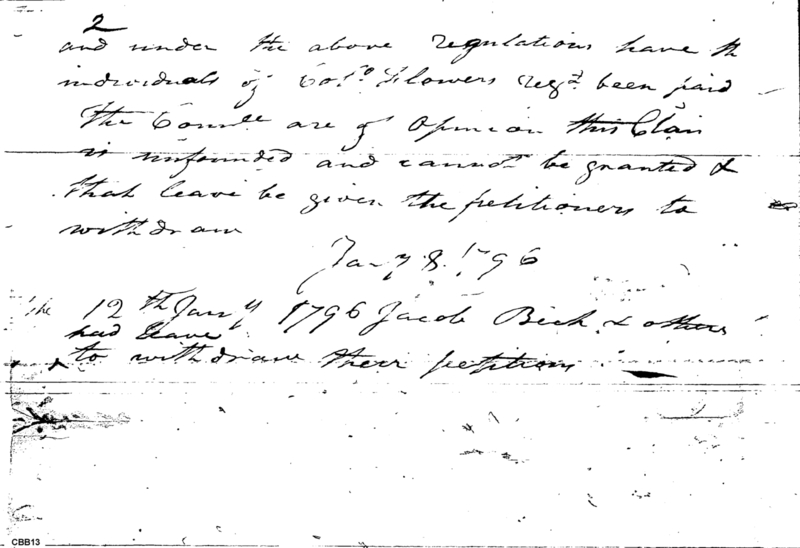 2
and under the above regulations have th
individuals of Colo Flowers regt been paid
The Comee are of Opinion this Clai
is unfounded and cannot be granted &
that leave be given the petitioners to
withdraw
Jany 8. 1796
The 12th Jany 1796 Jacob Beck & others
had leave
to withdraw their petitions
CBB13